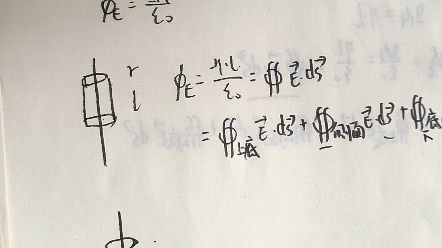 ϕE = ηl/ε₀
r
l
ϕE = η·l/ε₀ = ∯ E⃗·dS⃗
= ∯上底 E⃗·dS⃗ + ∯侧面 E⃗·dS⃗ + ∯下底